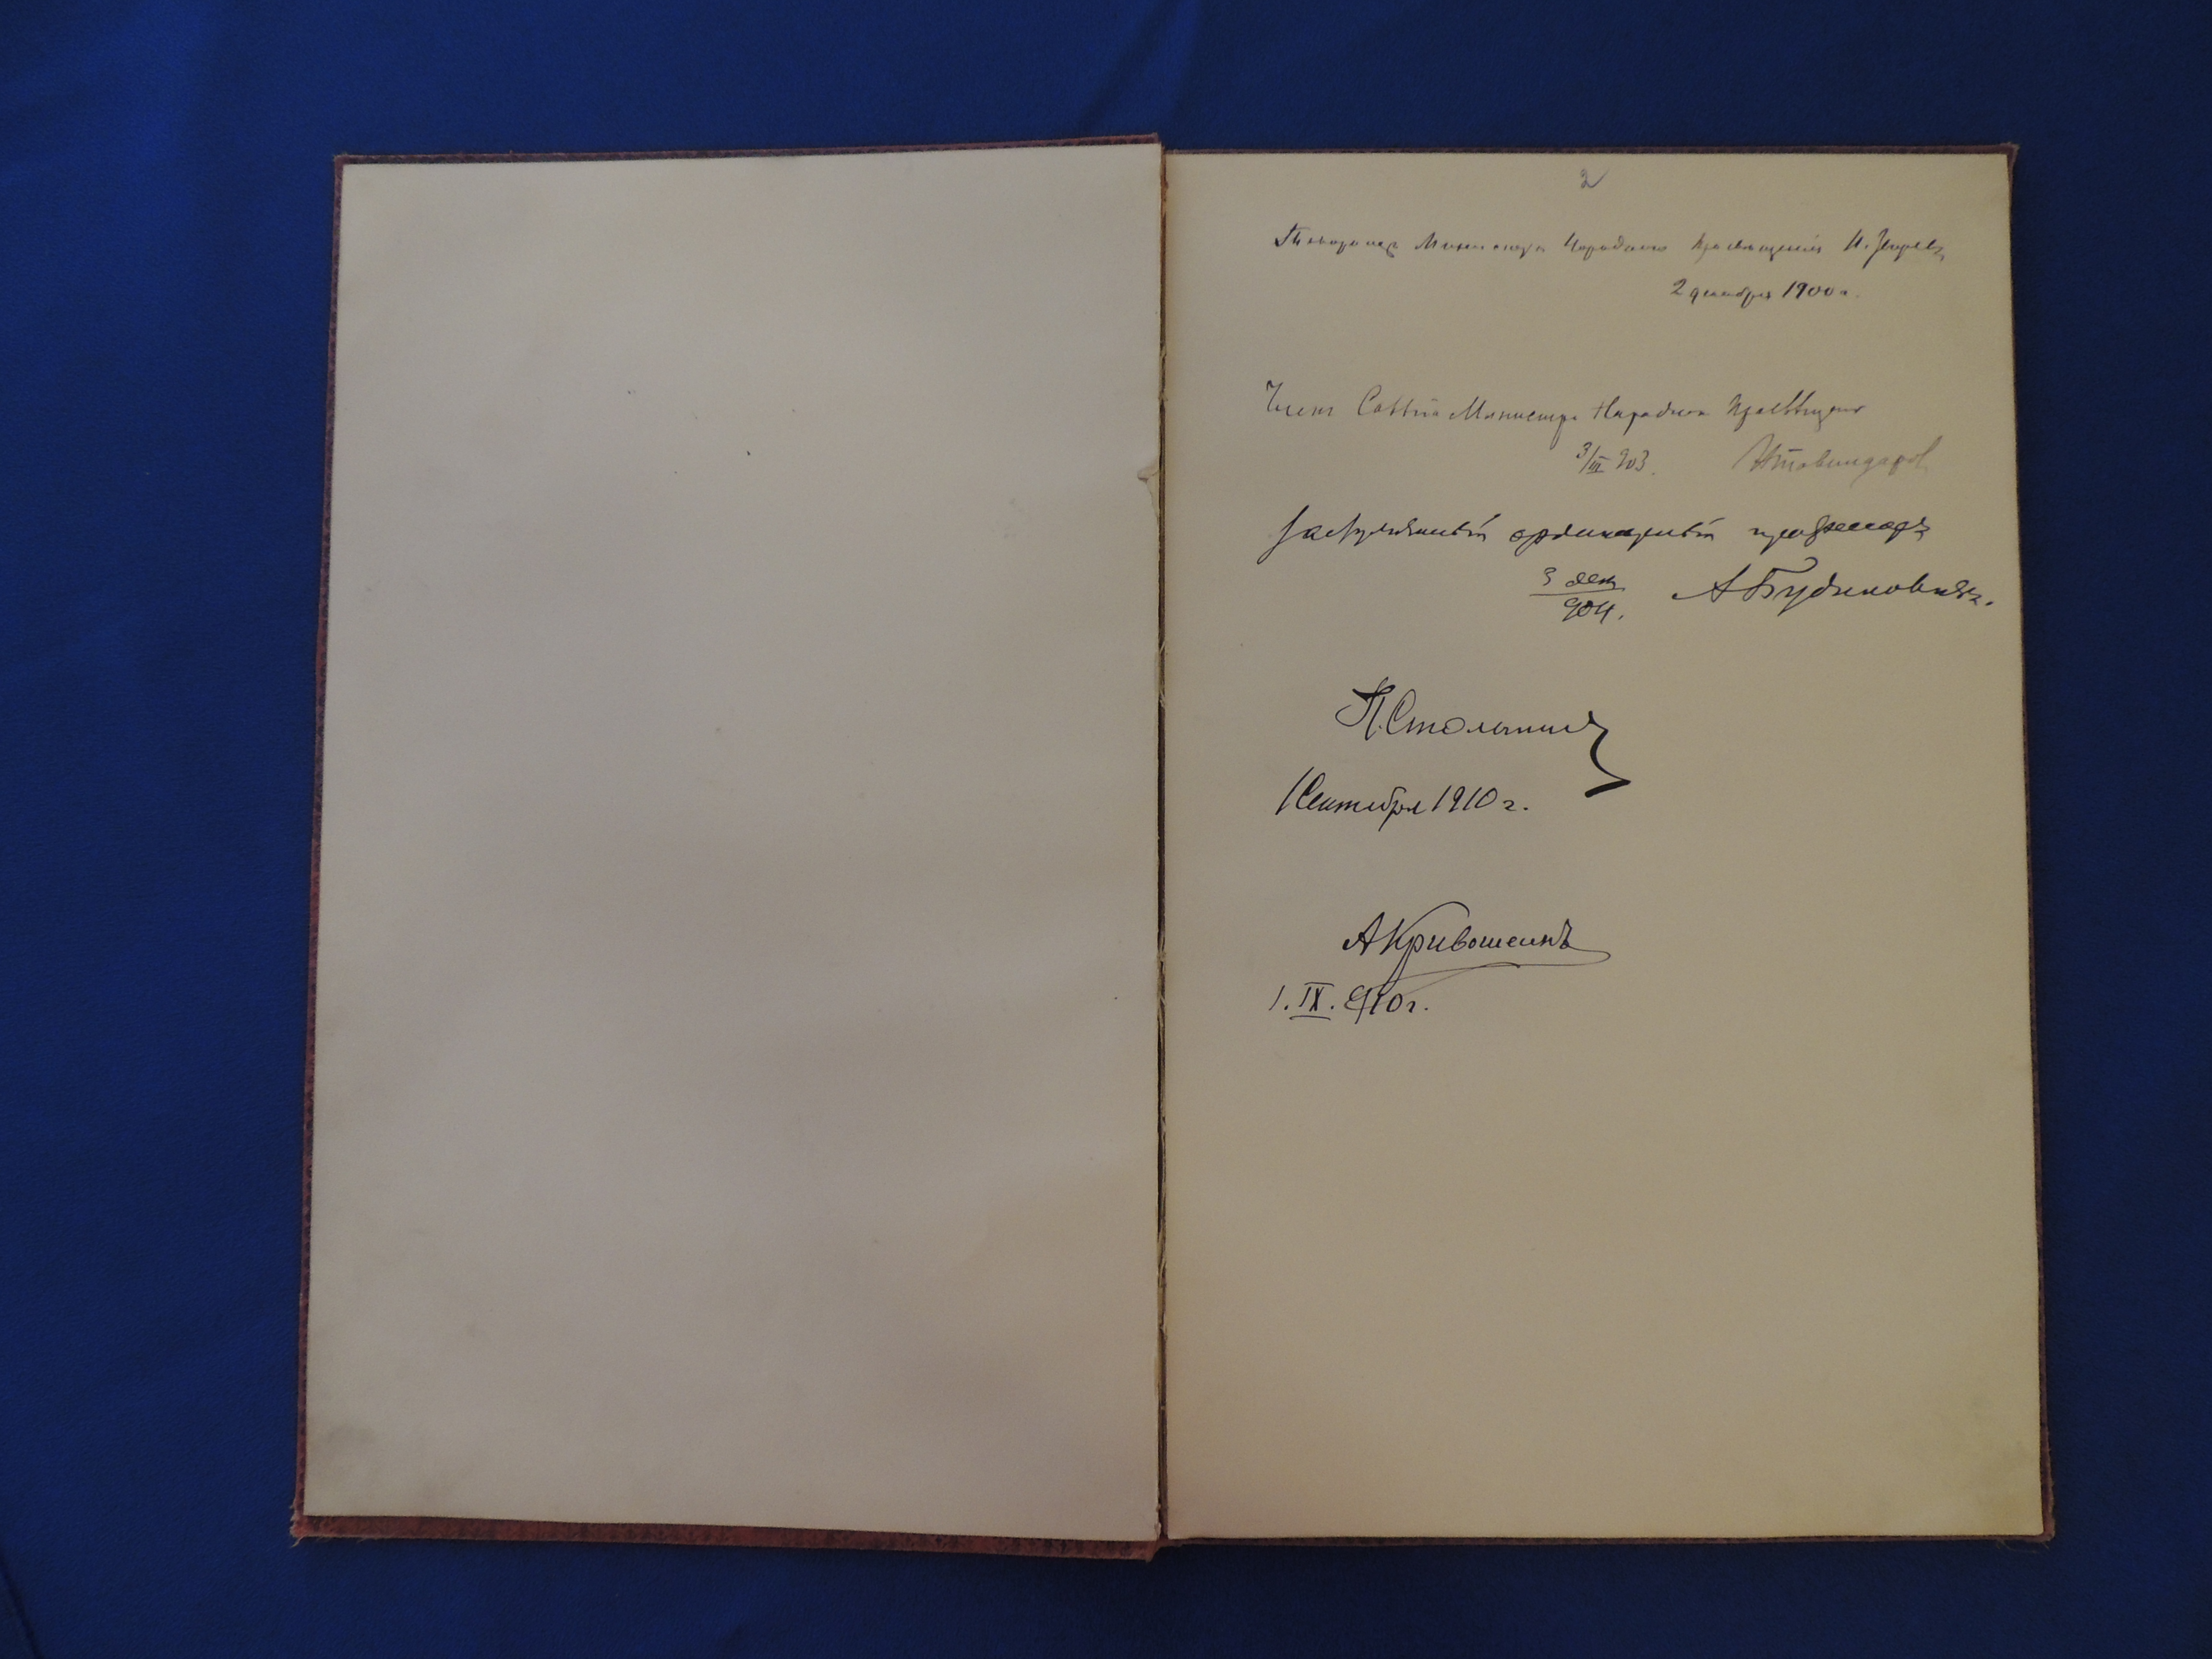 2
Товарищъ Министра Народнаго Просвѣщенія Н. Звѣревъ
2 декабря 1900 г.
Членъ Совѣта Министра Народнаго Просвѣщенія
3/III 903.
Заслуженный ординарный профессоръ
3 дек
904.
П. Столыпинъ
1 Сентября 1910 г.
А Кривошеинъ
1. IX. 910 г.